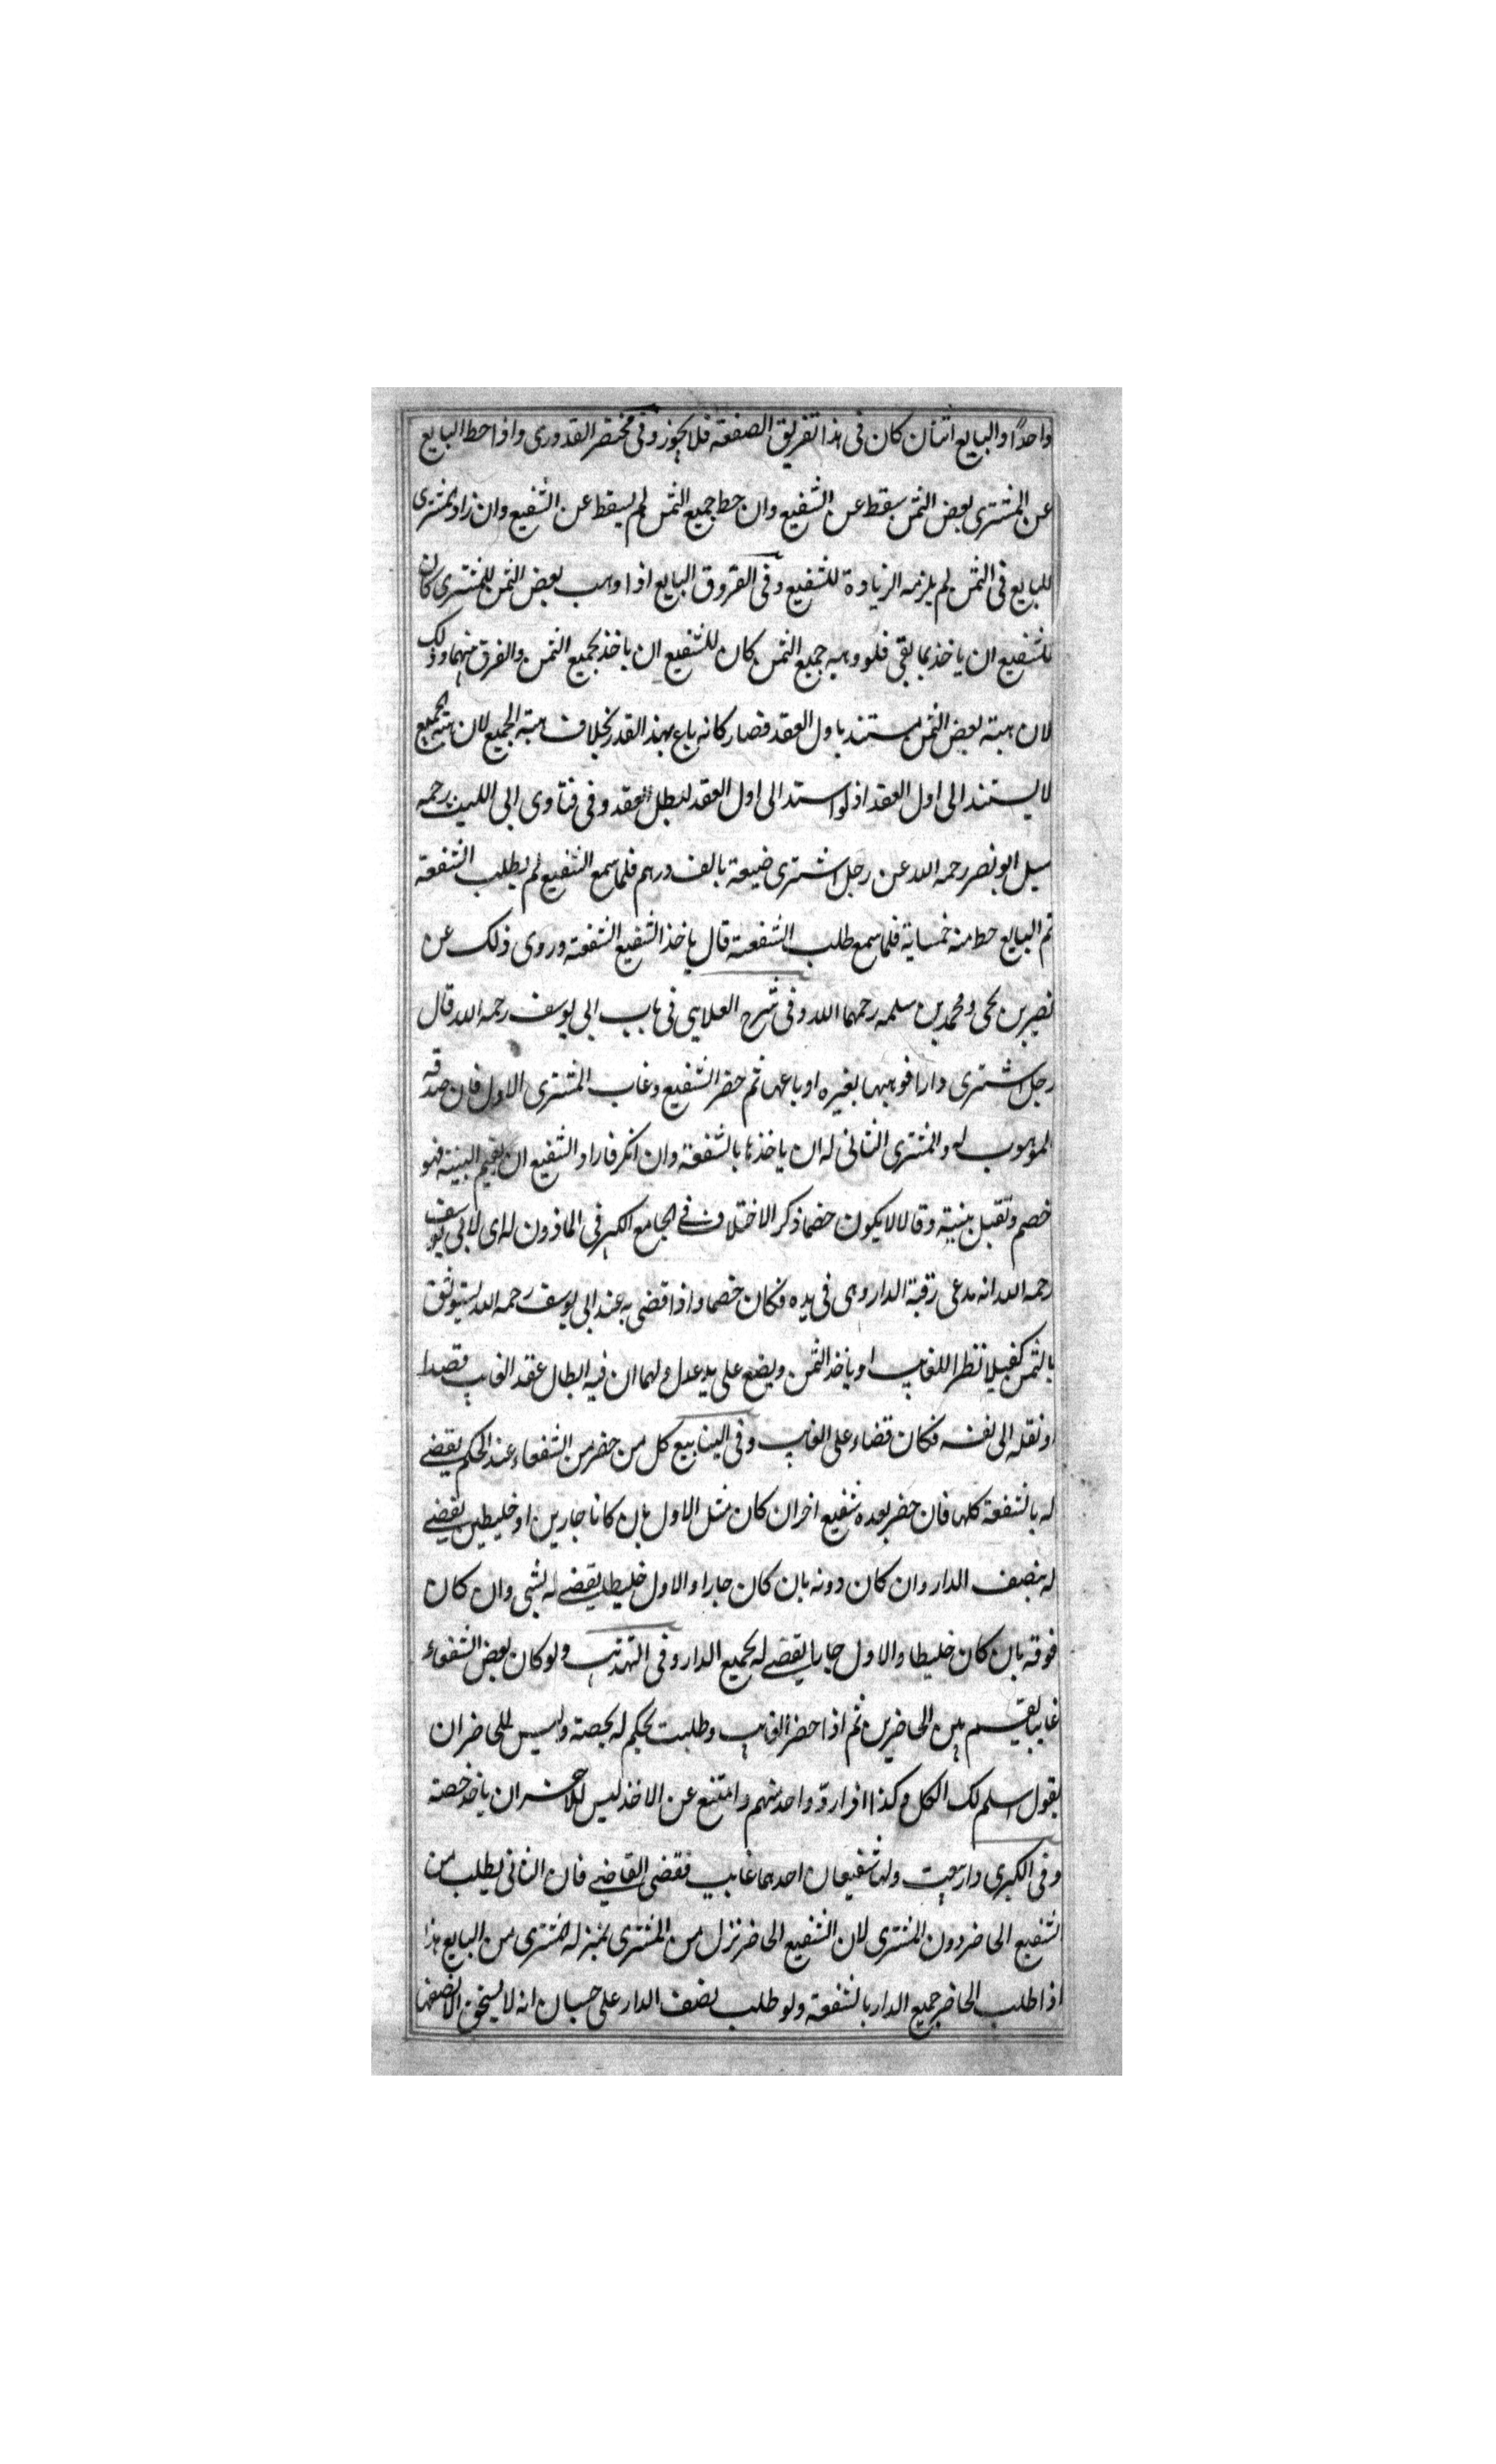 واحدًا والبايع اثنان كان فى هذا تفريق الصفقة فلا يجوز وفى مختصر القدورى واذا حط البايع
عن المشترى بعض الثمن سقط عن الشفيع وان حط جميع الثمن لم يسقط عن الشفيع وان زاد المشترى
للبايع فى الثمن لم يلزمه الزيادة للشفيع وفى الفروق البايع اذا وهب بعض الثمن للمشترى كان
للشفيع ان ياخذ بما بقى فلو وهبه جميع الثمن كان للشفيع ان ياخذ بجميع الثمن والفرق بينهما وذلك
لان هبة بعض الثمن يستند باول العقد فصار كانه باع بهذا القدر بخلاف هبة الجميع لان هبة الجميع
لا يستند الى اول العقد اذ لو استند الى اول العقد لبطل العقد وفى فتاوى ابى الليث رحمه
سيل ابو نصر رحمه الله عن رجل اشترى ضيعة بالف درهم فلما سمع الشفيع لم يطلب الشفعة
ثم البايع حط منه خمساية فلما سمع طلب الشفعة قال ياخذ الشفيع الشفعة وروى ذلك عن
نصير بن يحى ومحمد بن سلمه رحمهما الله وفى شرح العلايى فى باب ابى يوسف رحمه الله قال
رجل اشترى دارا فوهبها لغيره او باعها ثم حضر الشفيع وغاب المشترى الاول فان صدقه
الموهوب له والمشترى الثانى له ان ياخذها بالشفعة وان انكر فاراد الشفيع ان يقيم البينة فهو
خصم وتقبل بينته وقالا لا يكون خصما ذكر الاختلاف فے الجامع الكبير فى الماذون له اى لابى يوسف
رحمه الله انه يدعى رقبة الدار وهى فى يده فكان خصما واذا قضى به عند ابى يوسف رحمه الله يستوثق
بالثمن كفيلا نظرا للغايب او ياخذ الثمن ويضع على يد عدل ولهما ان فيه ابطال عقد الغايب قصدا
او نقله الى نفسه فكان قضاء على الغايب وفى الينابيع كل من حضر من الشفعاء عند الحكم يقضے
له بالشفعة كلها فان حضر بعده شفيع اخر ان كان مثل الاول بان كانا جارين او خليطين يقضے
له بنصف الدار وان كان دونه بان كان جارا والاول خليطا يقضے له بشى وان كان
فوقه بان كان خليطا والاول جارا يقضے له بجميع الدار وفى التهذيب ولو كان بعض الشفعاء
غايبا يقسم بين الحاضرين ثم اذا حضر الغايب وطلبت يحكم له بحصته وليس للحاضر ان
يقول اسلم لك الكل وكذا اذا رد واحد منهم وامتنع عن الاخذ ليس للاخر ان ياخذ حصته
وفى الكبرى دار بيعت ولها شفيعان احدهما غايب فقضى القاضے فان الثانى يطلب من
الشفيع الحاضر دون المشترى لان الشفيع الحاضر نزل من المشترى بمنزلة المشترى من البايع هذا
اذا طلب الحاضر جميع الدار بالشفعة ولو طلب نصف الدار على حسبان انه لا يستحق الا نصفها